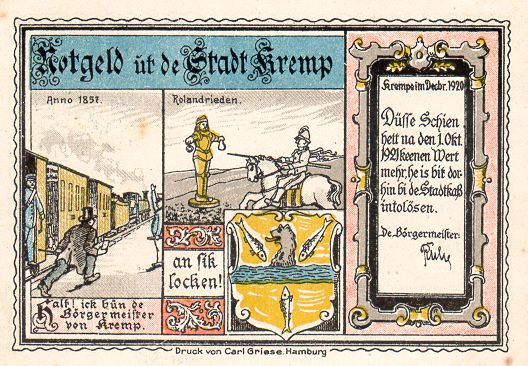 Notgeld üt de Stadt Kremp
Anno 1857.
Rolandrieden.
Halt! ick bün de
Börgermeister
von Kremp.
an sik
socken!
Krempe im Decbr. 1920
Düsse Schien
hett na den 1. Okt.
1921 keenen Wert
mehr, he is bit dor-
hin bi de Stadtkaß
intolösen.
De Börgermeister:
Druck von Carl Griese, Hamburg